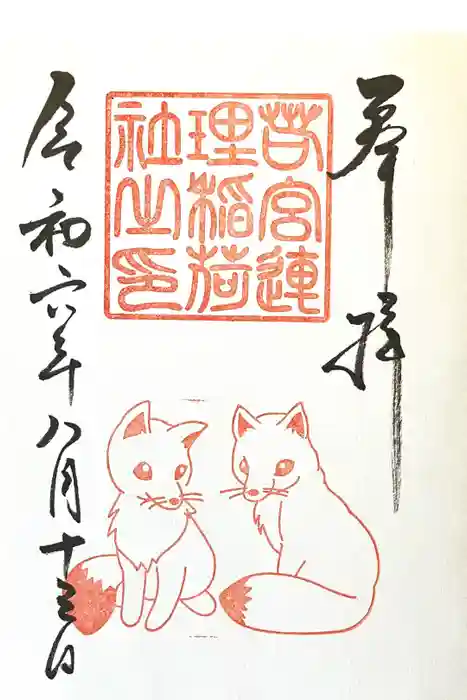 奉拝
若宮連
理稲荷
社之印
令和六年八月十五日